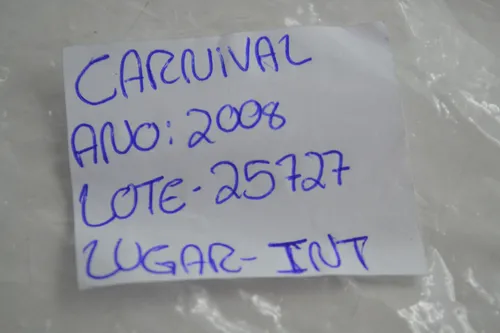 CARNiVAL
ANO: 2008
LOTE-25727
LUGAR-INT